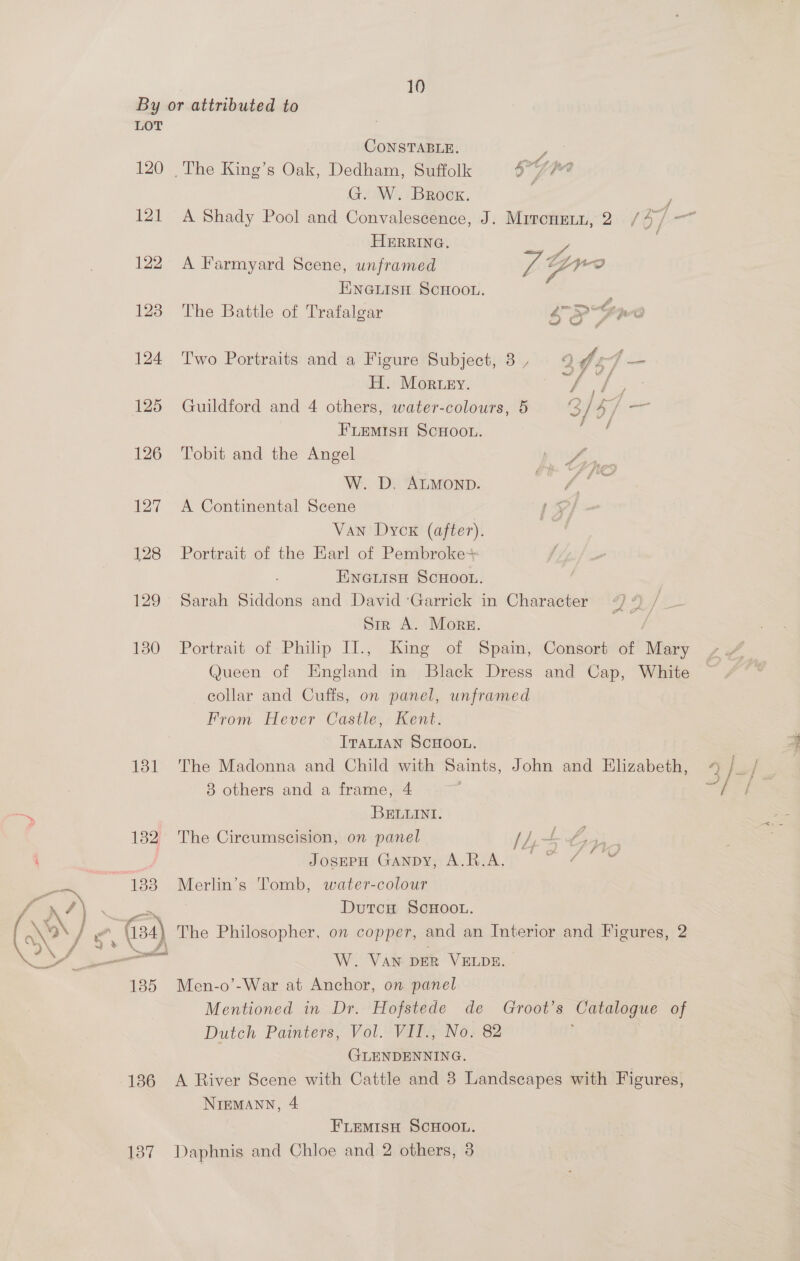 10
By or attributed to
LOT
CONSTABLE.
120 The King's Oak, Dedham, Suffolk
G. W. BROCK.
121 A Shady Pool and Convalescence, J. MITCHELL, 2
HERRING.
122 A Farmyard Scene, unframed
ENGLISH SCHOOL.
123 The Battle of Trafalgar
124 Two Portraits and a Figure Subject, 3
H. MORLEY.
125 Guildford and 4 others, water-colours, 5
FLEMISH SCHOOL.
126 Tobit and the Angel
W. D. ALMOND.
127 A Continental Scene
VAN DYCK (after).
128 Portrait of the Earl of Pembroke
ENGLISH SCHOOL.
129 Sarah Siddons and David Garrick in Character
SIR A. MORE.
130 Portrait of Philip II., King of Spain, Consort of Mary
Queen of England in Black Dress and Cap, White
collar and Cuffs, on panel, unframed
From Hever Castle, Kent.
ITALIAN SCHOOL.
131 The Madonna and Child with Saints, John and Elizabeth,
3 others and a frame, 4
BELLINI.
132 The Circumscision, on panel
JOSEPH GANDY, A.R.A.
133 Merlin's Tomb, water-colour
DUTCH SCHOOL.
134 The Philosopher, on copper, and an Interior and Figures, 2
W. VAN DER VELDE.
135 Men-o'-War at Anchor, on panel
Mentioned in Dr. Hofstede de Groot's Catalogue of
Dutch Painters, Vol. VII., No. 82
GLENDENNING.
136 A River Scene with Cattle and 3 Landscapes with Figures,
NIEMANN, 4
FLEMISH SCHOOL.
137 Daphnis and Chloe and 2 others, 3